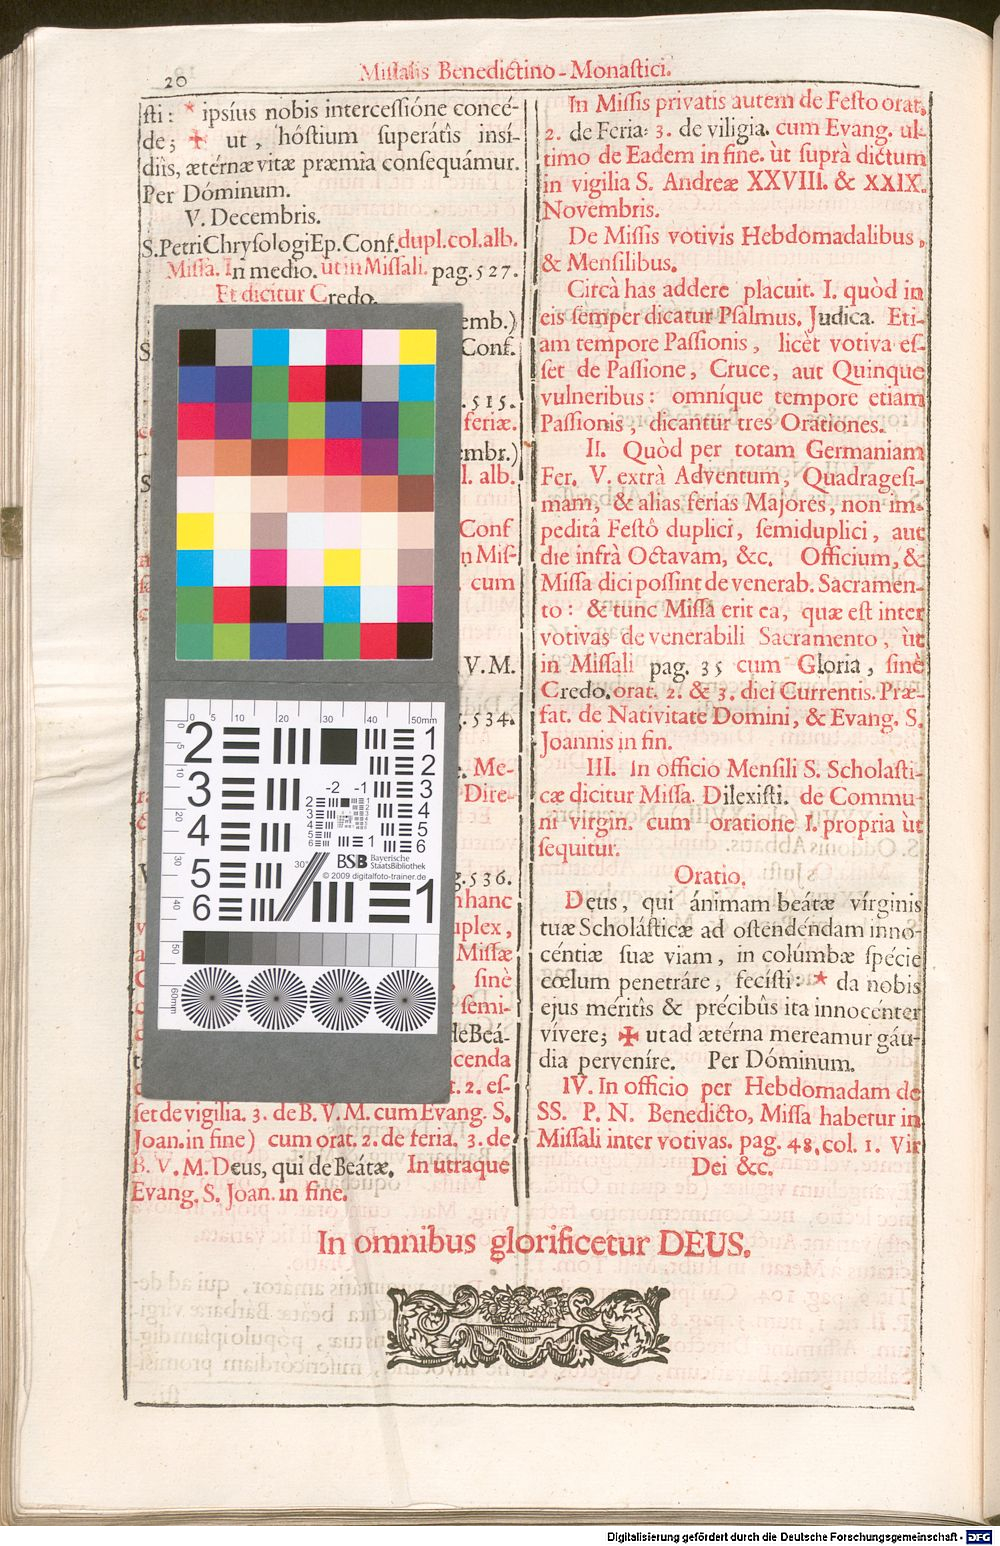 20
Missalis Benedictino-Monastici.
sti: * ipsíus nobis intercessióne concé-
de; ✠ ut, hóstium superátis insí-
diis, ætérnæ vitæ præmia consequámur.
Per Dóminum.
V. Decembris.
S. Petri Chrysologi Ep. Conf. dupl. col. alb.
Missa. In medio. ut in Missali. pag. 527.
Et dicitur Credo.
emb.)
Conf.
.515.
feriæ.
embr.)
l. alb.
Conf
n Mis-
cum
V. M.
.534.
. Me-
Dire-
g. 536.
hanc
uplex,
Missæ
sinè
semi-
de Beá-
icenda
t. 2. es-
set de vigilia. 3. de B. V. M. cum Evang. S.
Joan. in fine) cum orat. 2. de feria. 3. de
B. V. M. Deus, qui de Beátæ. In utraque
Evang. S. Joan. in fine.
In Missis privatis autem de Festo orat,
2. de Feria: 3. de viligia. cum Evang. ul-
timo de Eadem in fine. ùt suprà dictum
in vigilia S. Andreæ XXVIII. & XXIX.
Novembris.
De Missis votivis Hebdomadalibus,
& Mensilibus.
Circà has addere placuit. I. quòd in
eis semper dicatur Psalmus. Judica. Eti-
am tempore Passionis, licèt votiva es-
set de Passione, Cruce, aut Quinque
vulneribus: omníque tempore etiam
Passionis, dicantur tres Orationes.
II. Quòd per totam Germaniam
Fer. V. extrà Adventum, Quadragesi-
mam, & alias ferias Majores, non im-
pedità Festô duplici, semiduplici, aut
die infrà Octavam, &c. Officium, &
Missa dici possint de venerab. Sacramen-
to: & tunc Missa erit ea, quæ est inter
votivas de venerabili Sacramento, ùt
in Missali pag. 35 cum Gloria, sinè
Credo. orat. 2. & 3. diei Currentis. Præ-
fat. de Nativitate Domini, & Evang. S.
Joannis in fin.
III. In officio Mensili S. Scholasti-
cæ dicitur Missa. Dilexisti. de Commu-
ni virgin. cum oratione I. propria ùt
sequitur.
Oratio.
Deus, qui ánimam beátæ vírginis
tuæ Scholásticæ ad ostendéndam inno-
céntiæ suæ viam, in colúmbæ spécie
cœlum penetráre, fecisti: * da nobis
ejus meritis & précibus ita innocénter
vívere; ✠ ut ad ætérna mereamur gáu-
dia perveníre. Per Dóminum.
IV. In officio per Hebdomadam de
SS. P. N. Benedicto, Missa habetur in
Missali inter votivas. pag. 48. col. 1. Vir
Dei &c.
In omnibus glorificetur DEUS.
0 5 10 20 30 40 50mm
0 5 10 20 30 40 50 60mm
2 1
2
3 3
4 4
5 5
6 6
-2 -1
30°
BSB Bayerische StaatsBibliothek
© 2009 digitalfoto-trainer.de
1
Digitalisierung gefördert durch die Deutsche Forschungsgemeinschaft - DFG